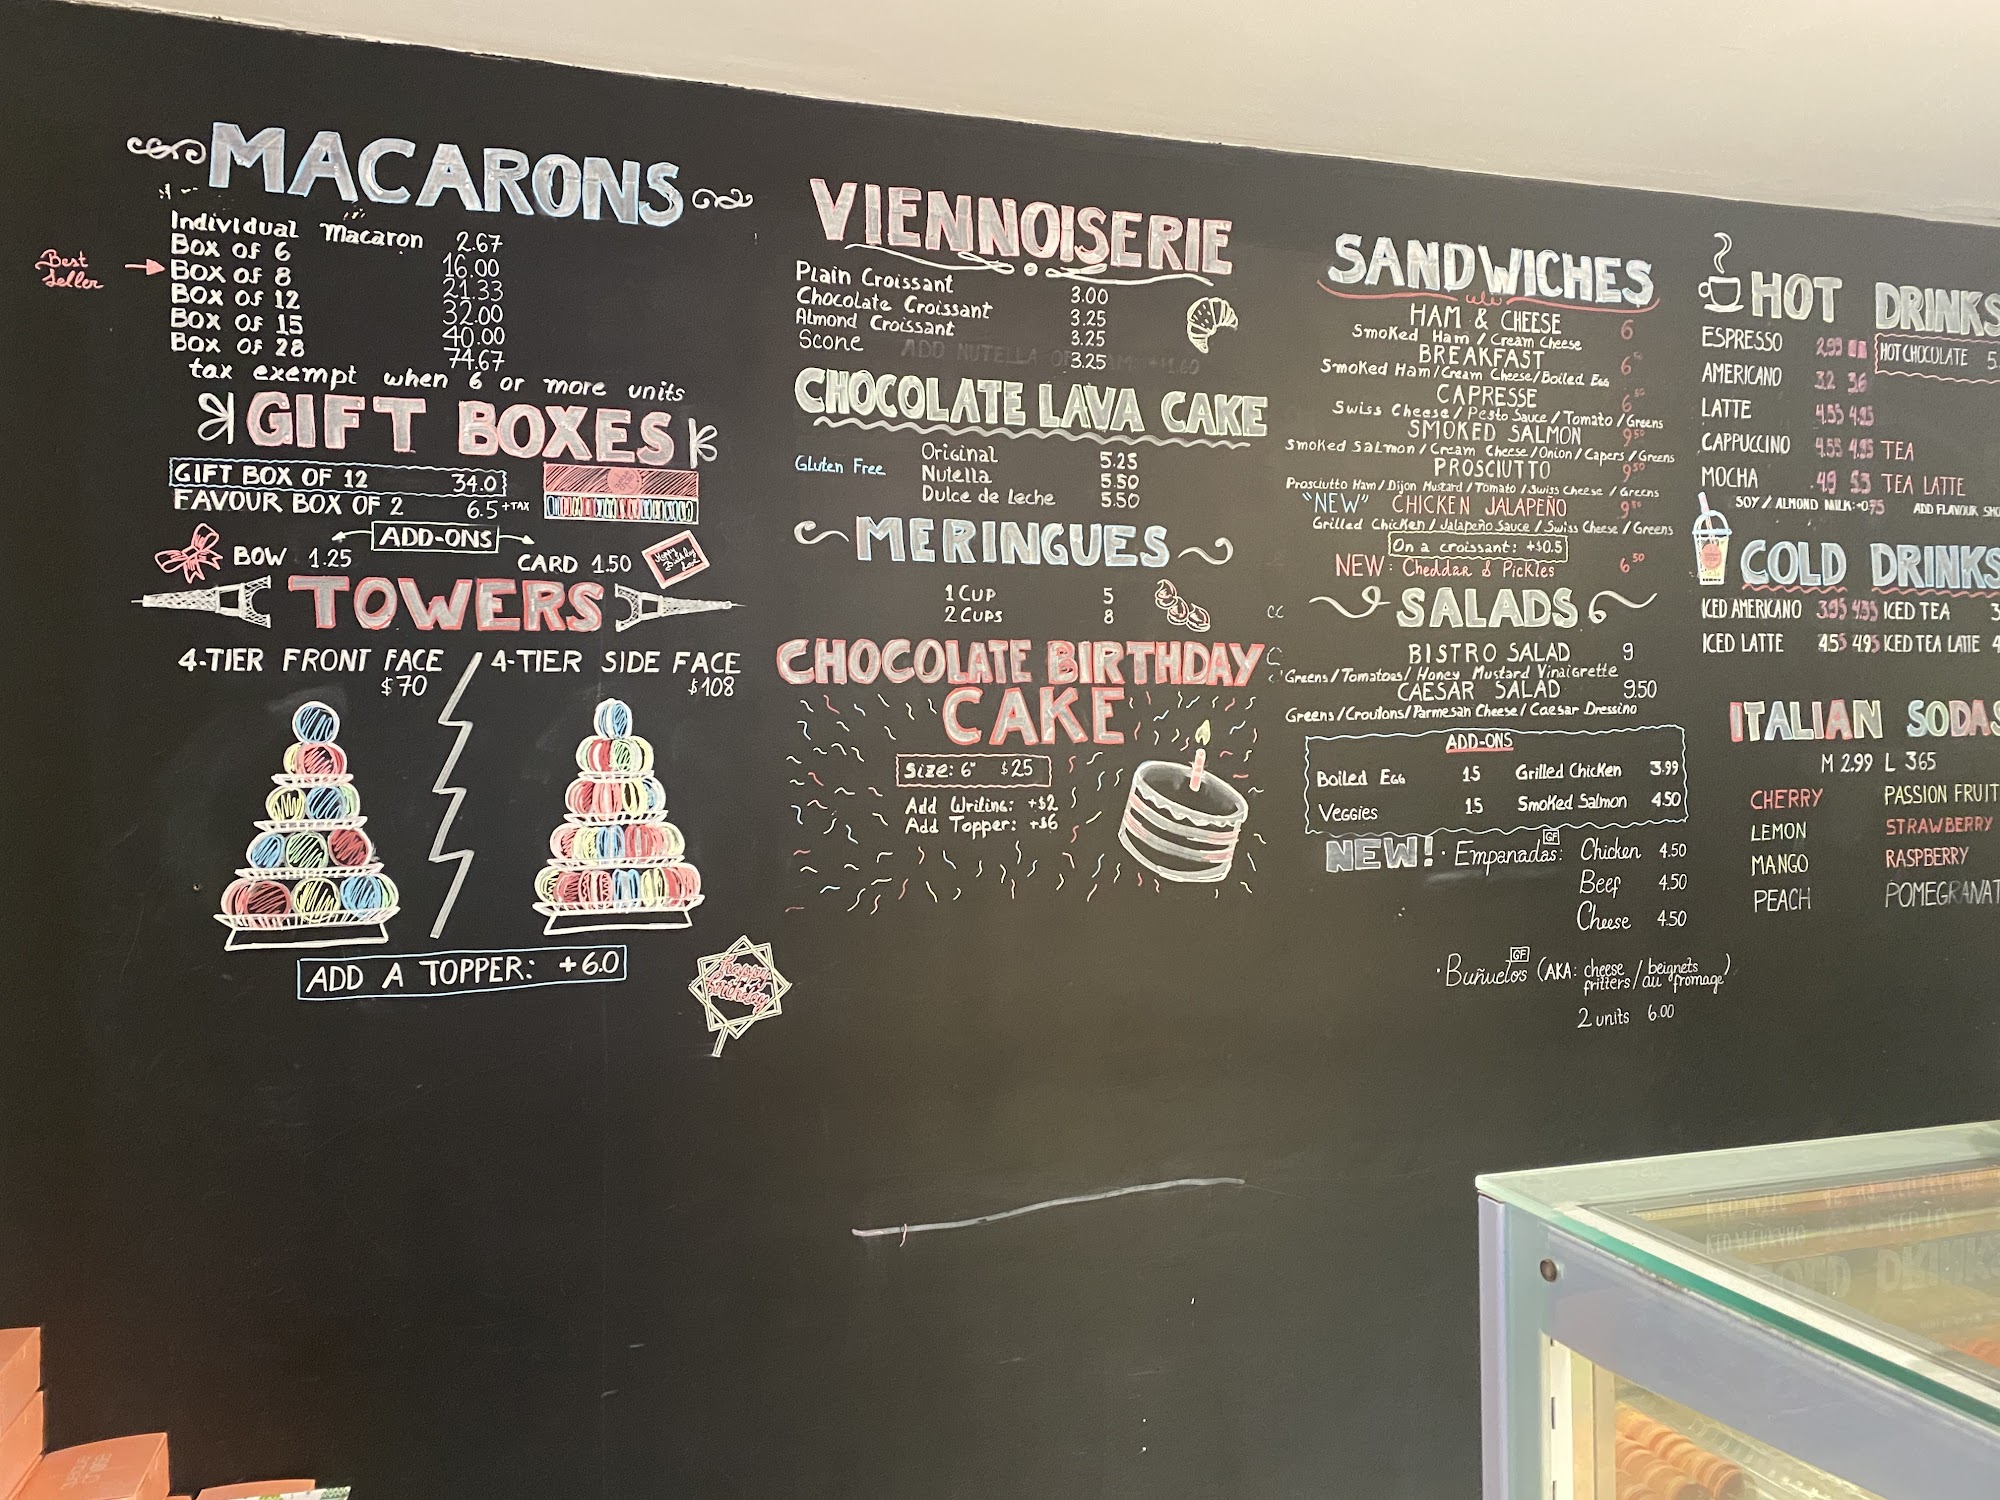 MACARONS
Individual Macaron 2.67
Box of 6 16.00
Best Seller → Box of 8 21.33
Box of 12 32.00
Box of 15 40.00
Box of 28 74.67
tax exempt when 6 or more units
GIFT BOXES
GIFT BOX OF 12 34.0
FAVOUR BOX OF 2 6.5 +TAX
ADD-ONS
BOW 1.25 CARD 1.50
TOWERS
4-TIER FRONT FACE $70
4-TIER SIDE FACE $108
ADD A TOPPER: +6.0
happy birthday
VIENNOISERIE
Plain Croissant 3.00
Chocolate Croissant 3.25
Almond Croissant 3.25
Scone 3.25
ADD NUTELLA
CHOCOLATE LAVA CAKE
Gluten Free
Original 5.25
Nutella 5.50
Dulce de leche 5.50
MERINGUES
1 CUP 5
2 CUPS 8
CHOCOLATE BIRTHDAY
CAKE
Size: 6" $25
Add Writing: +$2
Add Topper: +$6
SANDWICHES
HAM & CHEESE 6
Smoked Ham / Cream Cheese
BREAKFAST 6.50
Smoked Ham/Cream Cheese/Boiled Egg
CAPRESSE 6.50
Swiss Cheese / Pesto Sauce / Tomato / Greens
SMOKED SALMON 9.50
Smoked Salmon / Cream Cheese /Onion / Capers / Greens
PROSCIUTTO 9.50
Prosciutto Ham / Dijon Mustard / Tomato / Swiss Cheese / Greens
"NEW" CHICKEN JALAPEÑO 9.50
Grilled Chicken / Jalapeño Sauce / Swiss Cheese / Greens
On a croissant: +$0.5
NEW: Cheddar & Pickles 6.50
SALADS
BISTRO SALAD 9
Greens/Tomatoes/ Honey Mustard Vinaigrette
CAESAR SALAD 9.50
Greens/Croutons/Parmesan Cheese/ Caesar Dressing
ADD-ONS
Boiled Egg 1.5 Grilled Chicken 3.99
Veggies 1.5 Smoked Salmon 4.50
NEW! · Empanadas: GF Chicken 4.50
Beef 4.50
Cheese 4.50
· Buñuelos GF (AKA: cheese fritters / beignets au fromage)
2 units 6.00
HOT DRINKS
ESPRESSO 2.99
HOT CHOCOLATE 5.
AMERICANO 3.2 3.6
LATTE 4.55 4.95
CAPPUCCINO 4.55 4.95 TEA
MOCHA 4.9 5.3 TEA LATTE
SOY / ALMOND MILK: +0.75 ADD FLAVOUR
COLD DRINKS
ICED AMERICANO 3.95 4.35 ICED TEA 3
ICED LATTE 4.55 4.95 ICED TEA LATTE 4
ITALIAN SODAS
M 2.99 L 3.65
CHERRY PASSION FRUIT
LEMON STRAWBERRY
MANGO RASPBERRY
PEACH POMEGRANAT